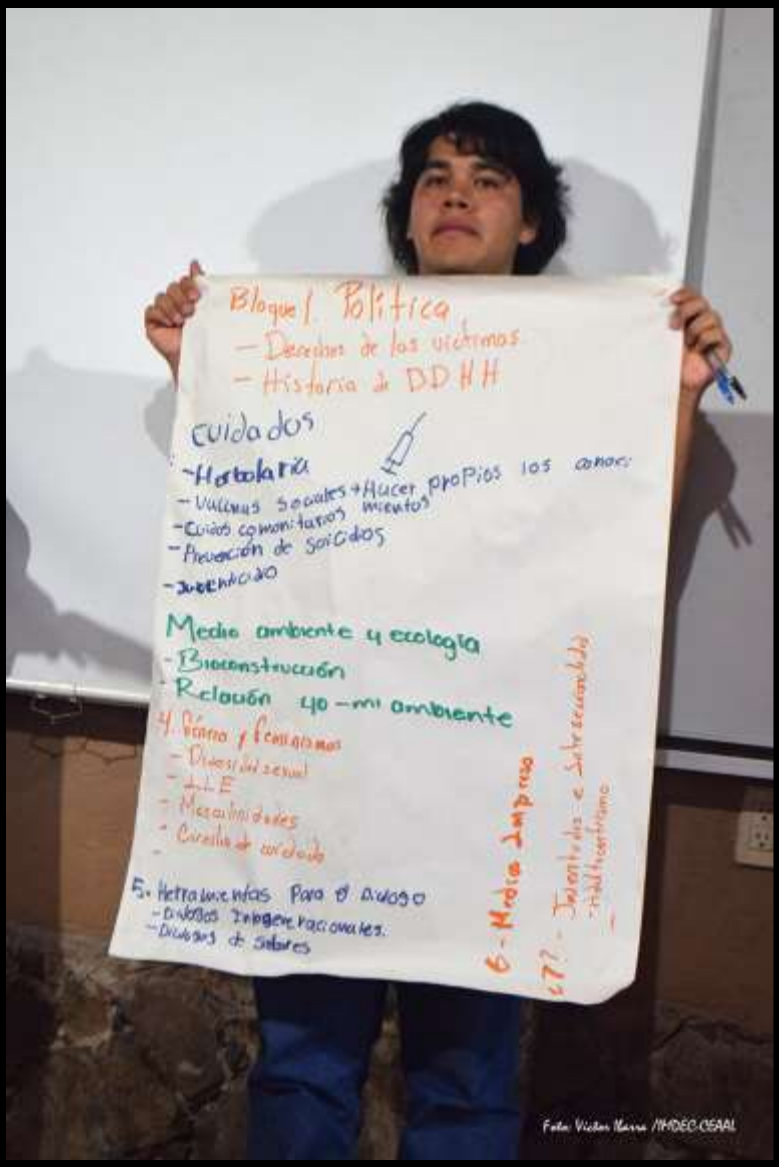 Bloque 1. Política
- Derechos de las victimas
- Historia de DDHH
cuidados
- Herbolaria
- Vacunas sociales + Hacer propios los conoci
mientos
- Cuidos comunitarios
- Prevención de suicidos
- Juvenicidio
Medio ambiente y ecología
- Bioconstrucción
- Relación yo - mi ambiente
4. Género y feminismos
- Diversidad sexual
- ILE
- Masculinidades
- Cuidado
-
5. Herramientas Para el Dialogo
- Dialogos Intergeneracionales.
- Dialogos de saberes
6 - Medio Impreso
¿7? - Juventudes e Interseccionalidad
- Adultocentrismo
-
Foto: Victor Ibarra /IMDEC-CEAAL